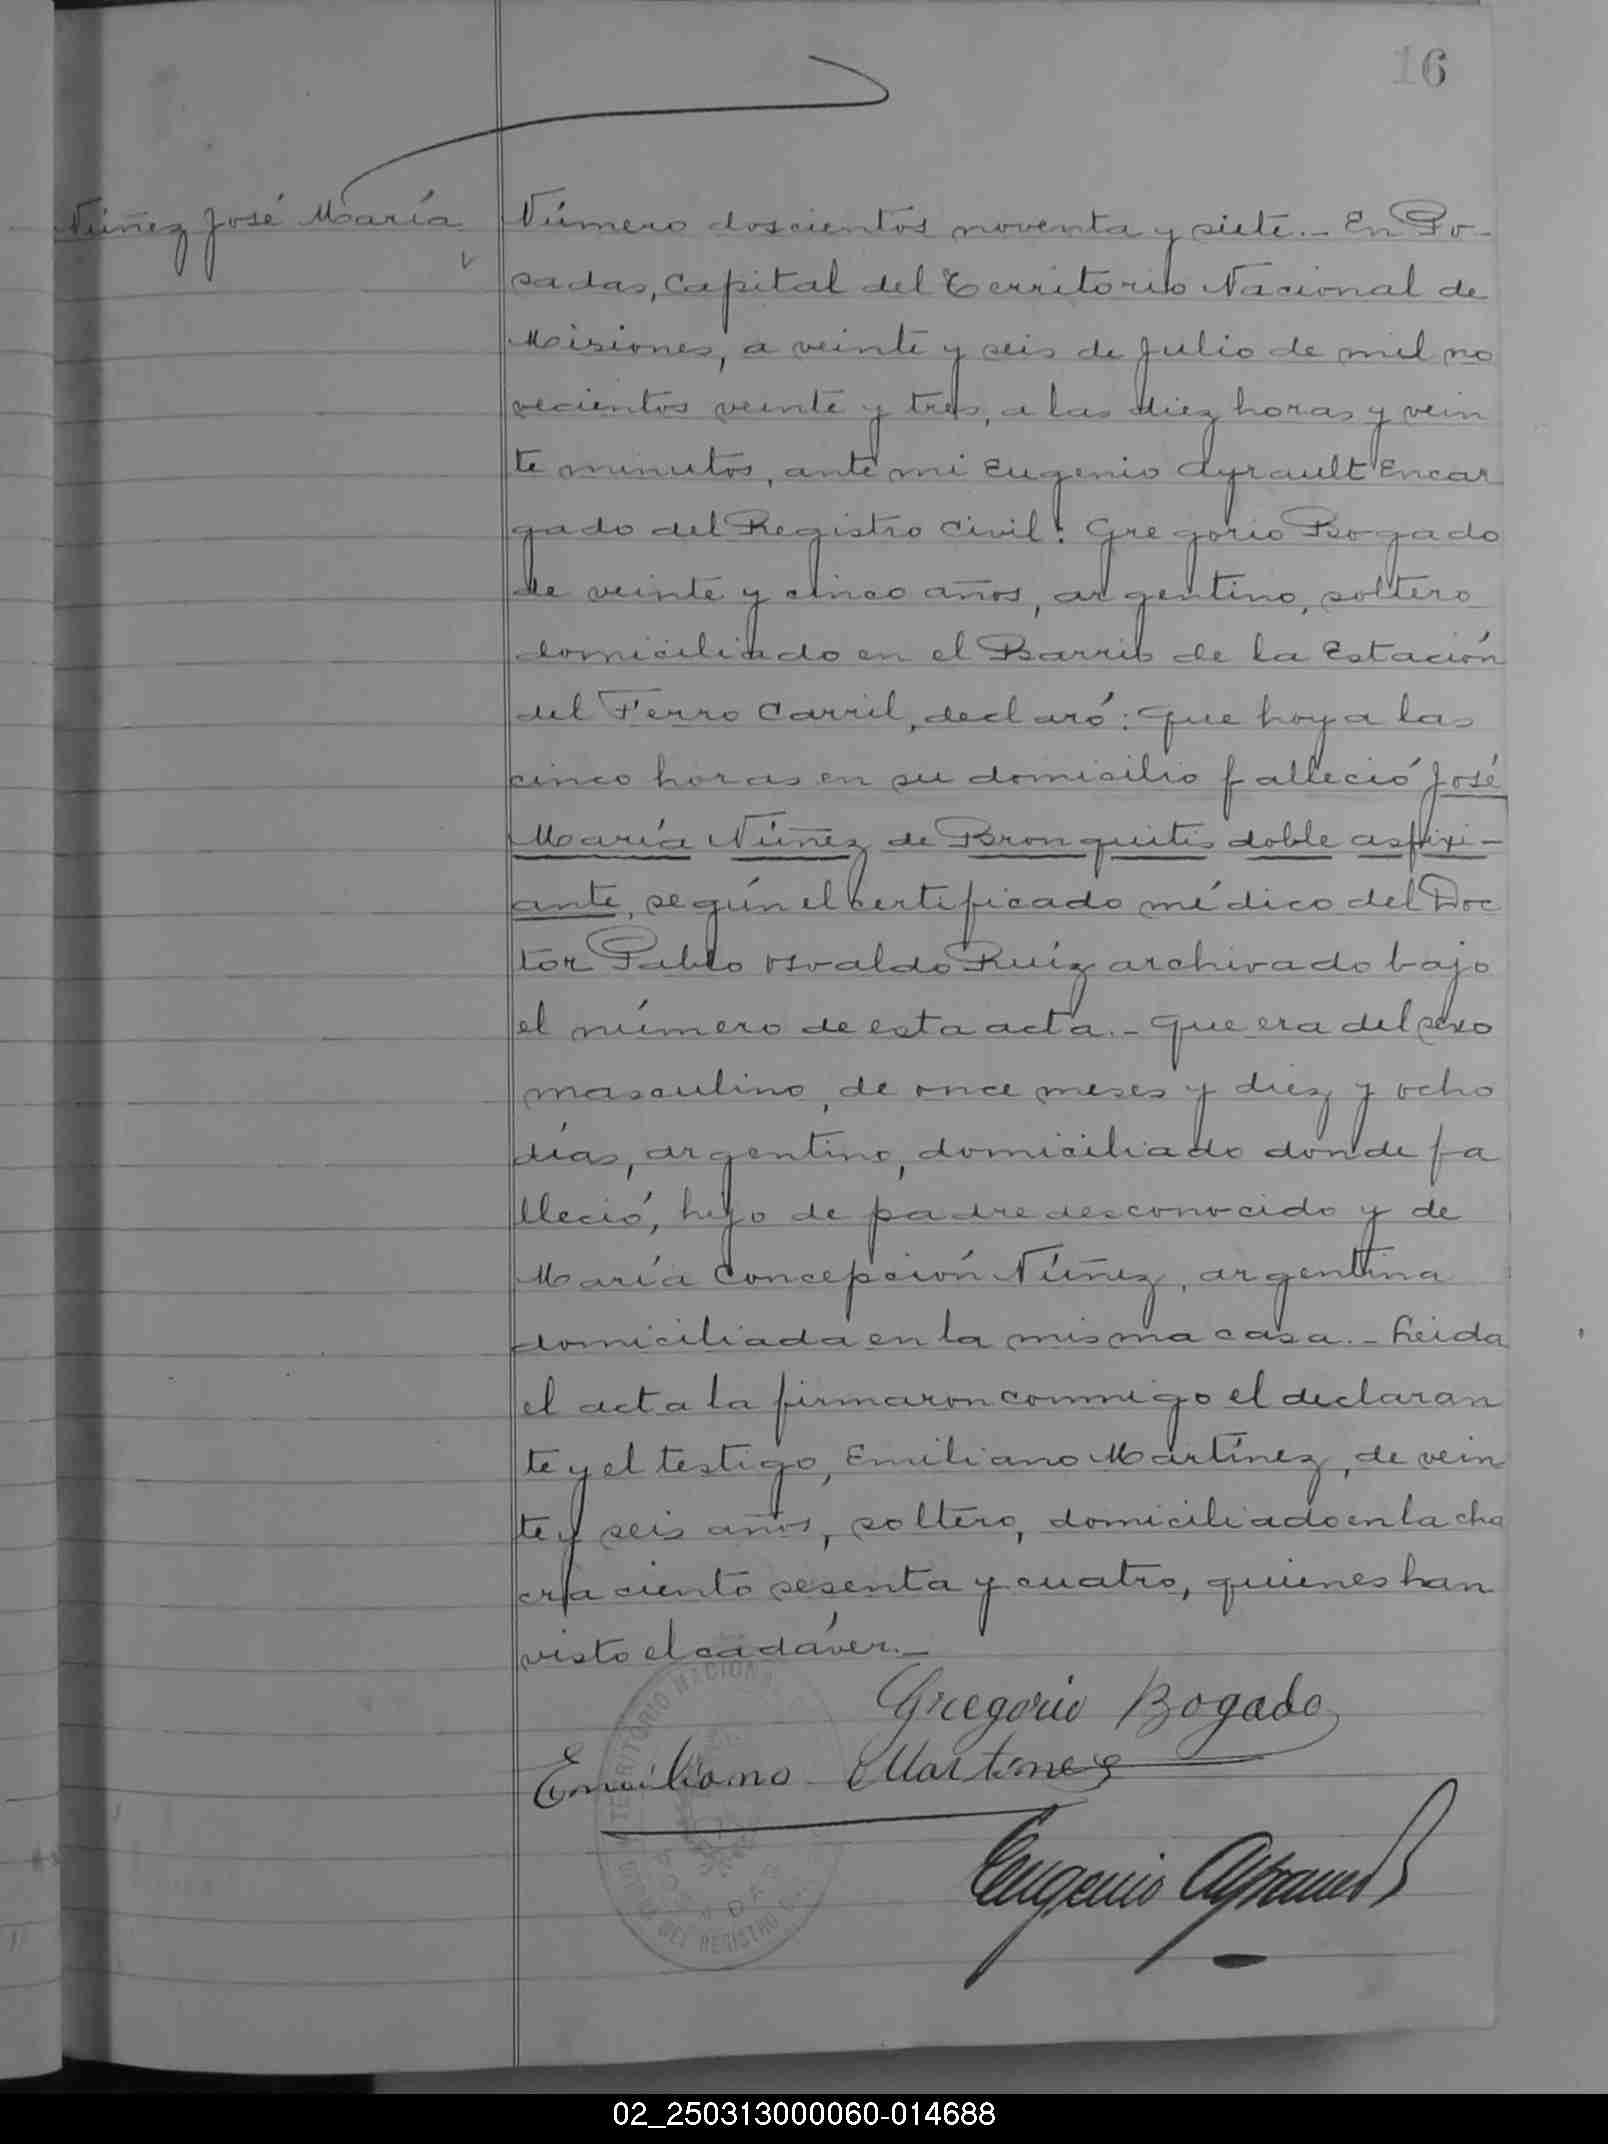 16
Núñez José María
Número doscientos noventa y siete.- En Po-
sadas, Capital del Territorio Nacional de
Misiones, a veinte y seis de Julio de mil no
vecientos veinte y tres, a las diez horas y vein
te minutos, ante mi Eugenio Ayrault Encar
gado del Registro Civil: Gregorio Bogado
de veinte y cinco años, argentino, soltero
domiciliado en el Barrio de la Estación
del Ferro Carril, declaró: Que hoy a las
cinco horas en su domicilio falleció José
María Núñez de Bronquitis doble asfixi-
ante, según el certificado médico del Doc
tor Pablo Osvaldo Ruíz archivado bajo
el número de esta acta.- Que era del sexo
masculino, de once meses y diez y ocho
días, argentino, domiciliado donde fa
lleció, hijo de padre desconocido y de
María Concepción Núñez, argentina
domiciliada en la misma casa.- Leida
el acta la firmaron conmigo el declaran
te y el testigo, Emiliano Martínez, de vein
te y seis años, soltero, domiciliado en la cha
cra ciento sesenta y cuatro, quienes han
visto el cadáver.-
Gregorio Bogado
Emiliano Martinez
Eugenio Ayrault
TERRITORIO NACIONAL
DEL REGISTRO
02_250313000060-014688